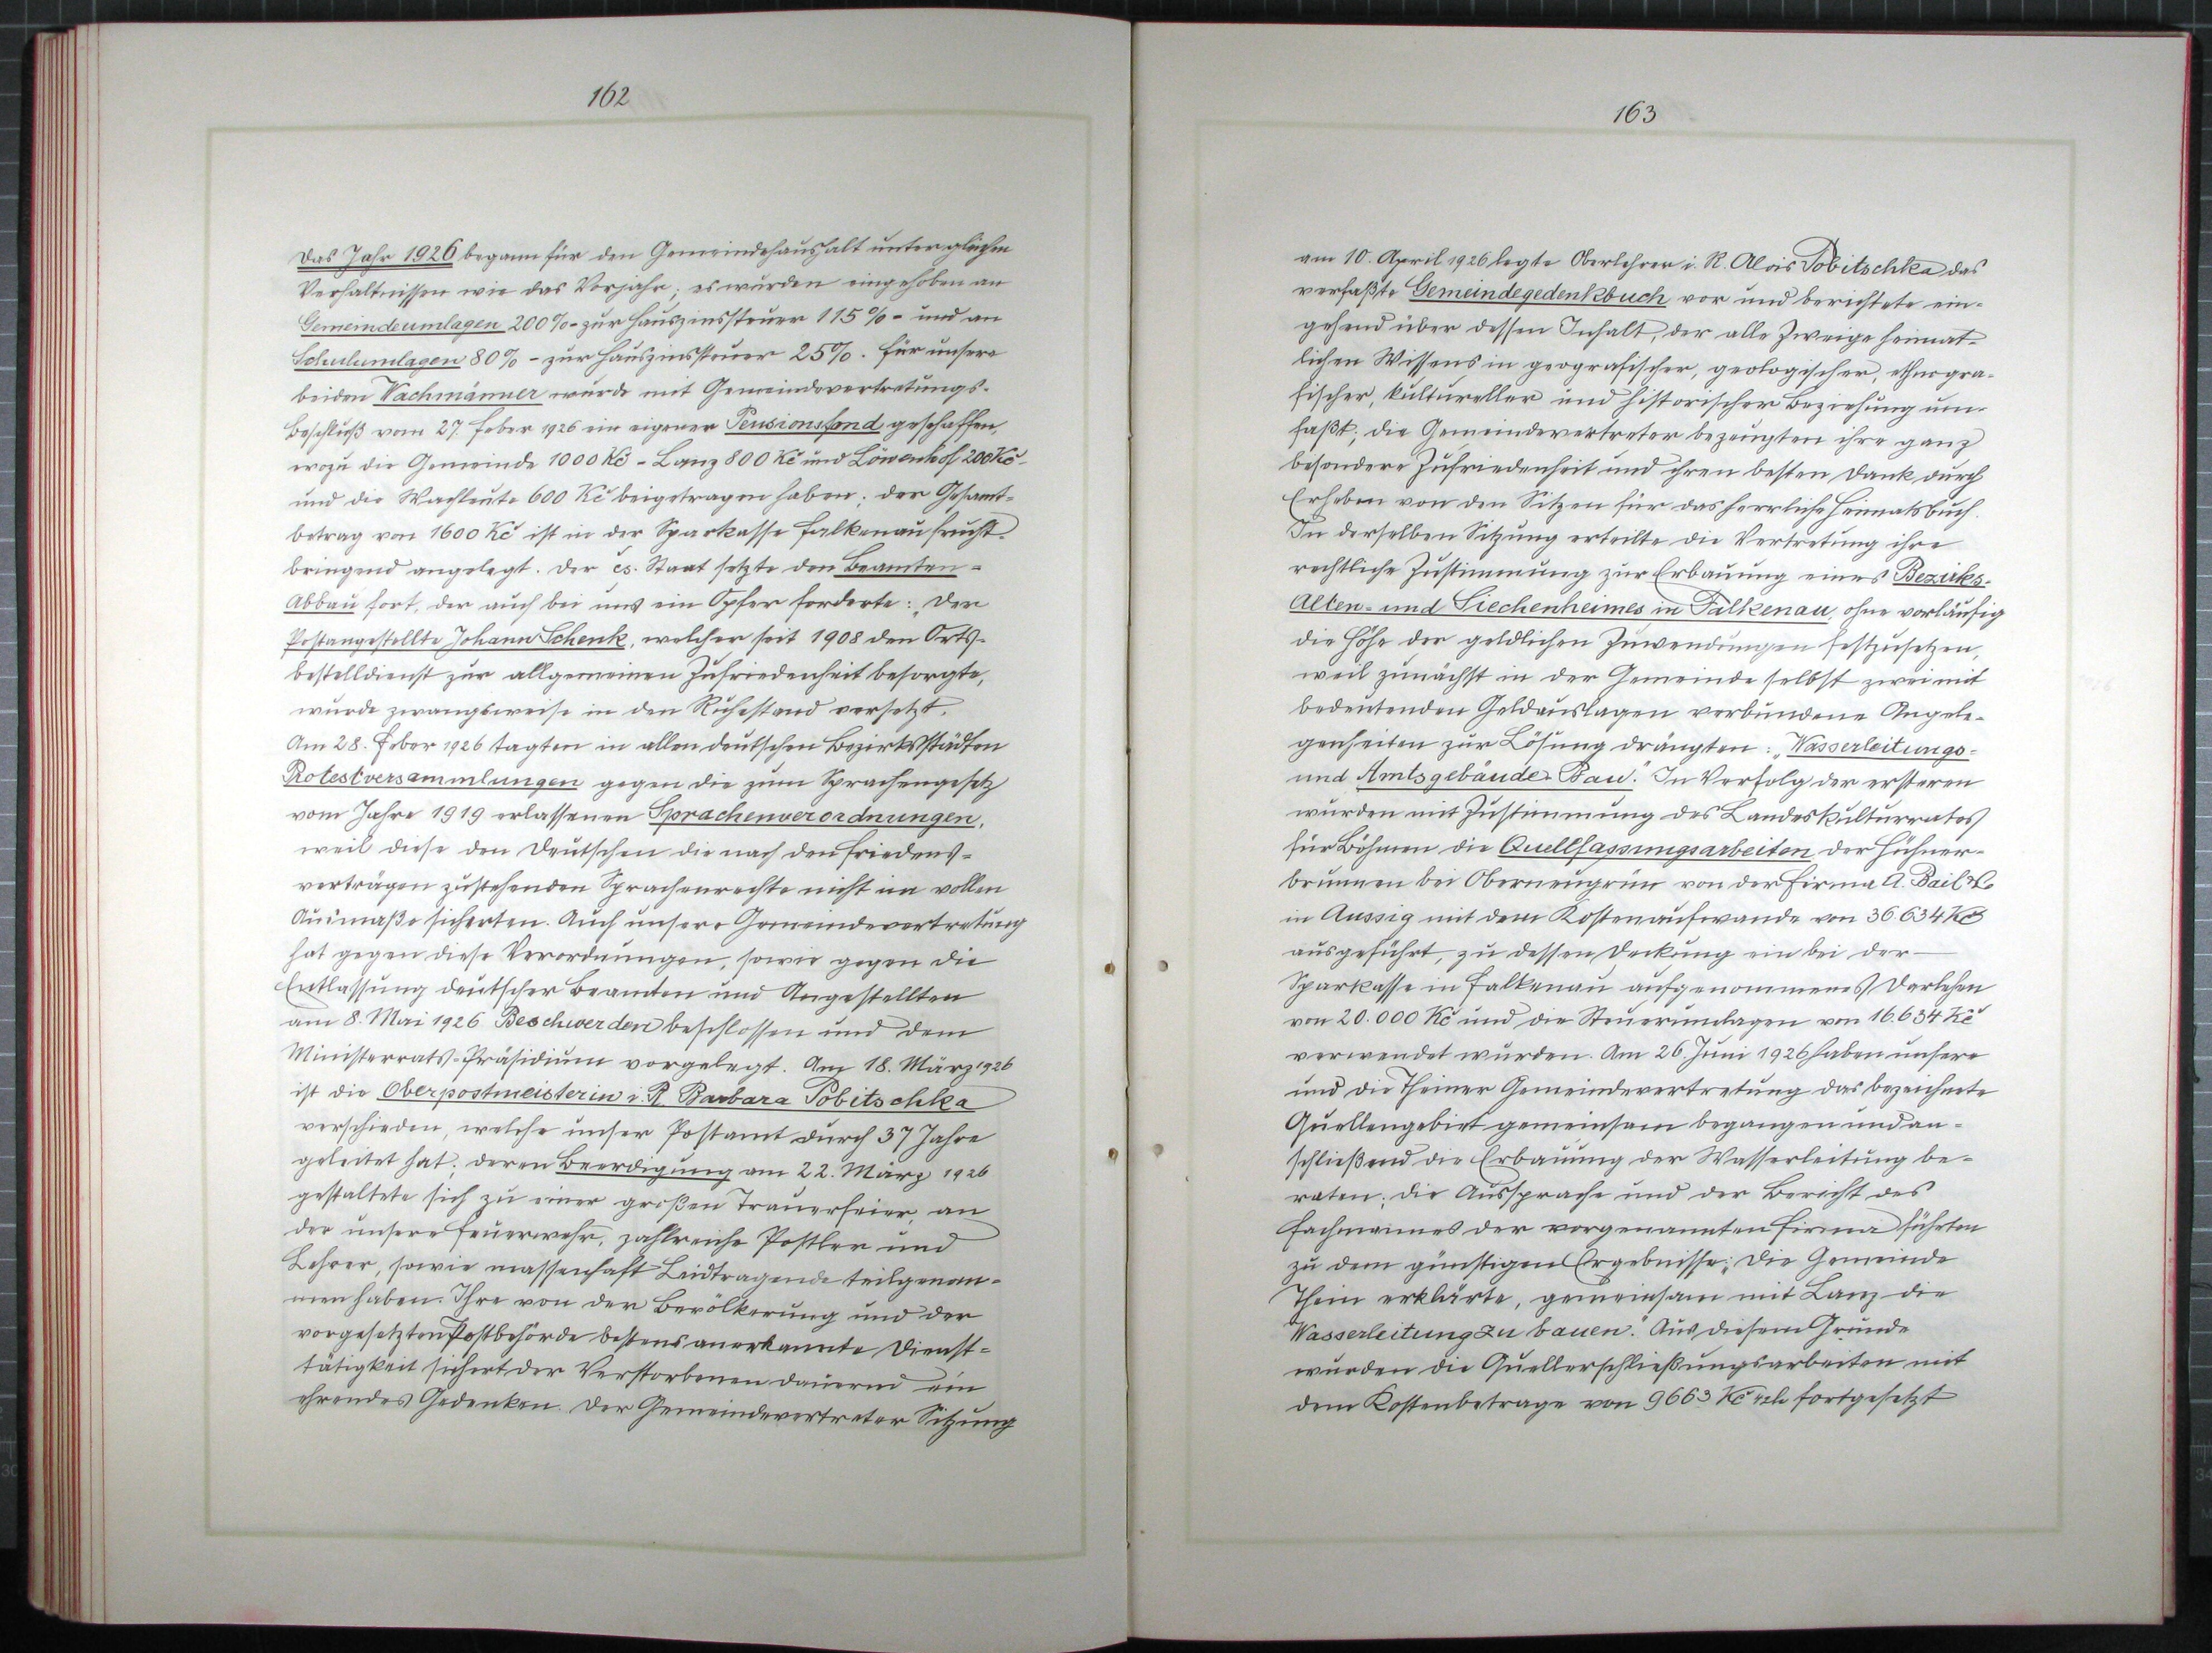 162
Das Jahr 1926 begann für den Gemeindehaushalt unter gleichen
Verhältnissen wie das Vorjahr; es wurden eingehoben an
Gemeindeumlagen 200% - zur Hauszinssteuer 115% - und an
Schulumlagen 80% - zur Hauszinssteuer 25%. Für unsere
beiden Wachmänner wurde mit Gemeindevertretungs-
Beschluß vom 27. Feber 1926 ein eigener Pensionsfond geschaffen,
wozu die Gemeinde 1000 Kč - Lanz 800 Kč und Löwenhof 200 Kč -
und die Wachleute 600 Kč beigetragen haben; der Gesamt-
betrag von 1600 Kč ist in der Sparkasse Falkenau frucht-
bringend angelegt. Der čs. Staat setzte den Beamten-
Abbau fort, der auch bei uns ein Opfer forderte: Der
Postangestellte Johann Schenk, welcher seit 1908 den Orts-
bestelldienst zur allgemeinen Zufriedenheit besorgte,
wurde zwangsweise in den Ruhestand versetzt.
Am 28. Feber 1926 tagten in allen deutschen Bezirksstädten
Protestversammlungen gegen die zum Sprachengesetz
vom Jahre 1919 erlassenen Sprachenverordnungen,
weil diese den Deutschen die nach den Friedens-
verträgen zustehenden Sprachenrechte nicht im vollen
Ausmaße sicherten. Auch unsere Gemeindevertretung
hat gegen diese Verordnungen, sowie gegen die
Entlassung deutscher Beamten und Angestellten
am 8. Mai 1926 Beschwerden beschlossen und dem
Ministerrats-Präsidium vorgelegt. Am 18. März 1926
ist die Oberpostmeisterin i. R. Barbara Pobitschka
verschieden, welche unser Postamt durch 37 Jahre
geleitet hat; deren Beerdigung am 22. März 1926
gestaltete sich zu einer großen Trauerfeier, an
der unsere Feuerwehr, zahlreiche Postler und
Lehrer, sowie massenhaft Leidtragende teilgenom-
men haben. Ihre von der Bevölkerung und der
vorgesetzten Postbehörde bestens anerkannte Dienst-
tätigkeit sichert der Verstorbenen dauernd ein
ehrendes Gedenken. Der Gemeindevertreter Sitzung
163
am 10. April 1926 legte Oberlehrer i. R. Alois Pobitschka das
verfaßte Gemeindegedenkbuch vor und berichtete ein-
gehend über dessen Inhalt, der alle Zweige heimat-
lichen Wissens in geografischer, geologischer, ethnogra-
fischer, kultureller und historischer Beziehung um-
faßt; die Gemeindevertreter bezeugten ihre ganz
besondere Zufriedenheit und ihren besten Dank durch
Erheben von den Sitzen für das herrliche Heimatsbuch.
In derselben Sitzung erteilte die Vertretung ihre
rechtliche Zustimmung zur Erbauung eines Bezirks-
Alten- und Siechenheimes in Falkenau, ohne vorläufig
die Höhe der geldlichen Zuwendungen festzusetzen,
weil zunächst in der Gemeinde selbst zwei mit
bedeutenden Geldauslagen verbundene Angele-
genheiten zur Lösung drängten: „Wasserleitungs-
und Amtsgebäude-Bau." In Verfolg der ersteren
wurden mit Zustimmung des Landeskulturrates
für Böhmen die Quellfassungsarbeiten der Hühner-
brunnen bei Oberneugrün von der Firma A. Bail & Co
in Aussig mit dem Kostenaufwande von 36.634 Kč
ausgeführt, zu dessen Deckung ein bei der
Sparkasse in Falkenau aufgenommenes Darlehen
von 20.000 Kč und die Steuerumlagen von 16.634 Kč
verwendet wurden. Am 26. Juni 1926 haben unsere
und die Theiner Gemeindevertretung das bezeichnete
Quellengebiet gemeinsam begangen und an-
schließend die Erbauung der Wasserleitung be-
raten; die Aussprache und der Bericht des
Fachmannes der vorgenannten Firma führten
zu dem günstigen Ergebnisse: „Die Gemeinde
Thein erklärte, gemeinsam mit Lanz die
Wasserleitung zu bauen." Aus diesem Grunde
wurden die Quellerschließungsarbeiten mit
dem Kostenbetrage von 9663 Kč fortgesetzt